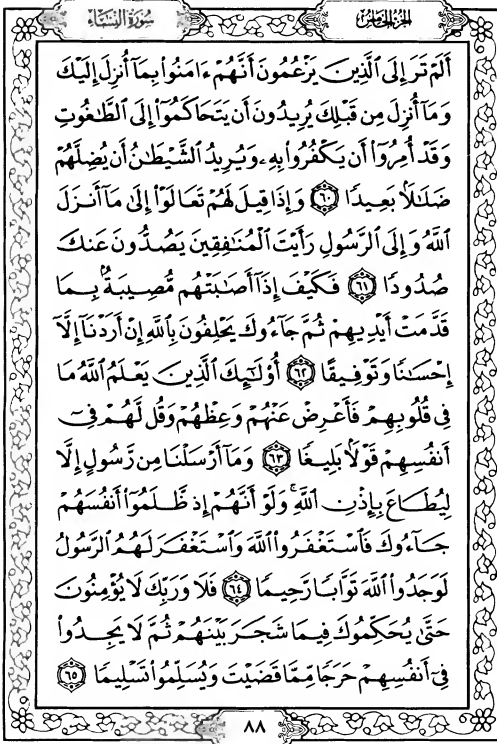 سُورَةُ النِّسَاءِ
الجُزءُ الخَامِسُ
أَلَمْ تَرَ إِلَى ٱلَّذِينَ يَزْعُمُونَ أَنَّهُمْ ءَامَنُوا۟ بِمَآ أُنزِلَ إِلَيْكَ
وَمَآ أُنزِلَ مِن قَبْلِكَ يُرِيدُونَ أَن يَتَحَاكَمُوٓا۟ إِلَى ٱلطَّٰغُوتِ
وَقَدْ أُمِرُوٓا۟ أَن يَكْفُرُوا۟ بِهِۦ وَيُرِيدُ ٱلشَّيْطَٰنُ أَن يُضِلَّهُمْ
ضَلَٰلًۢا بَعِيدًا ٦٠ وَإِذَا قِيلَ لَهُمْ تَعَالَوْا۟ إِلَىٰ مَآ أَنزَلَ
ٱللَّهُ وَإِلَى ٱلرَّسُولِ رَأَيْتَ ٱلْمُنَٰفِقِينَ يَصُدُّونَ عَنكَ
صُدُودًا ٦١ فَكَيْفَ إِذَآ أَصَٰبَتْهُم مُّصِيبَةٌۢ بِمَا
قَدَّمَتْ أَيْدِيهِمْ ثُمَّ جَآءُوكَ يَحْلِفُونَ بِٱللَّهِ إِنْ أَرَدْنَآ إِلَّآ
إِحْسَٰنًا وَتَوْفِيقًا ٦٢ أُو۟لَٰٓئِكَ ٱلَّذِينَ يَعْلَمُ ٱللَّهُ مَا
فِى قُلُوبِهِمْ فَأَعْرِضْ عَنْهُمْ وَعِظْهُمْ وَقُل لَّهُمْ فِىٓ
أَنفُسِهِمْ قَوْلًۢا بَلِيغًا ٦٣ وَمَآ أَرْسَلْنَا مِن رَّسُولٍ إِلَّا
لِيُطَاعَ بِإِذْنِ ٱللَّهِ ۚ وَلَوْ أَنَّهُمْ إِذ ظَّلَمُوٓا۟ أَنفُسَهُمْ
جَآءُوكَ فَٱسْتَغْفَرُوا۟ ٱللَّهَ وَٱسْتَغْفَرَ لَهُمُ ٱلرَّسُولُ
لَوَجَدُوا۟ ٱللَّهَ تَوَّابًا رَّحِيمًا ٦٤ فَلَا وَرَبِّكَ لَا يُؤْمِنُونَ
حَتَّىٰ يُحَكِّمُوكَ فِيمَا شَجَرَ بَيْنَهُمْ ثُمَّ لَا يَجِدُوا۟
فِىٓ أَنفُسِهِمْ حَرَجًا مِّمَّا قَضَيْتَ وَيُسَلِّمُوا۟ تَسْلِيمًا ٦٥
٨٨